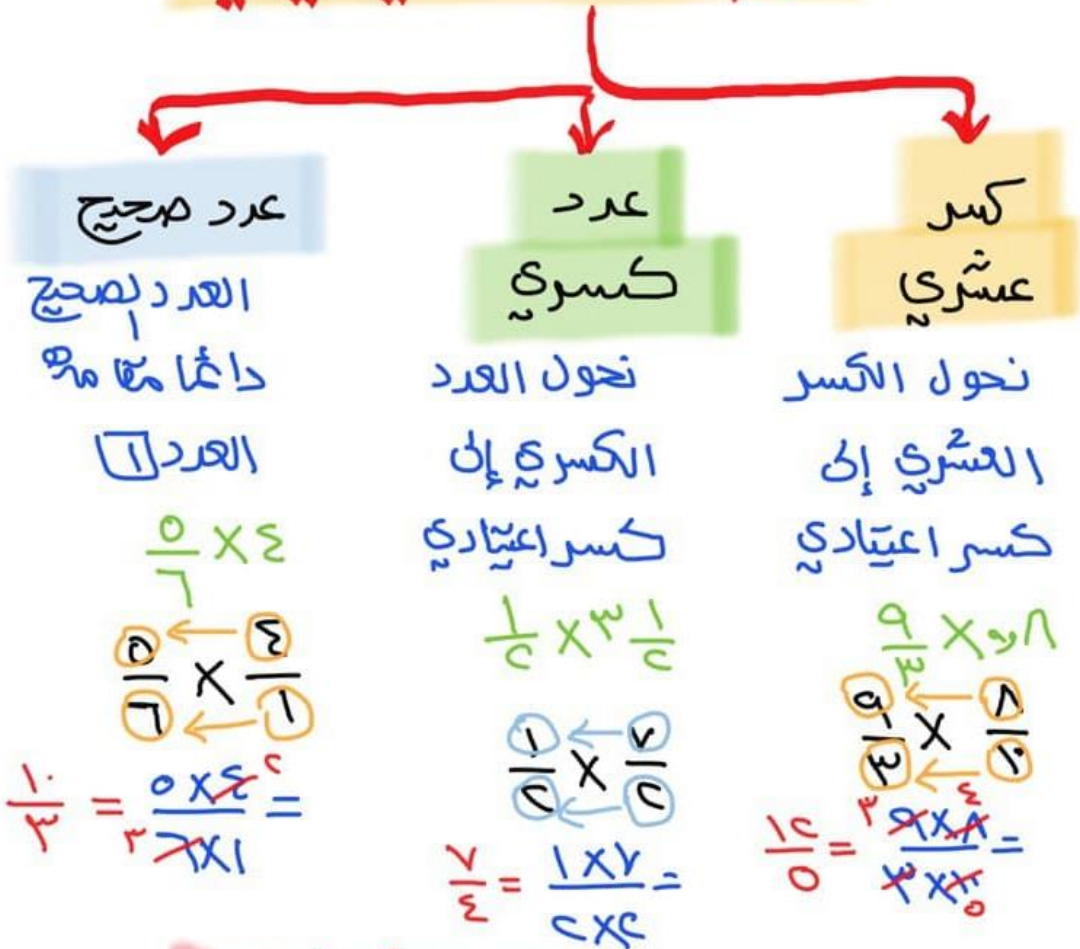 كسر
عشري
نحول الكسر
العشري إلى
كسر اعتيادي
٨و٠ × ٩/٣
٨/١٠ × ٩/٣
= ٨×٩ / ١٠×٣ = ١٢/٥
٤ ٣
٥
عدد
كسري
نحول العدد
الكسري إلى
كسر اعتيادي
٣ ١/٢ × ١/٢
٧/٢ × ١/٢
= ٧×١ / ٢×٢ = ٧/٤
عدد صحيح
العدد الصحيح
دائمًا مقامه
العدد ١
٤ × ٥/٦
٤/١ × ٥/٦
= ٤×٥ / ١×٦ = ١٠/٣
٢
٣